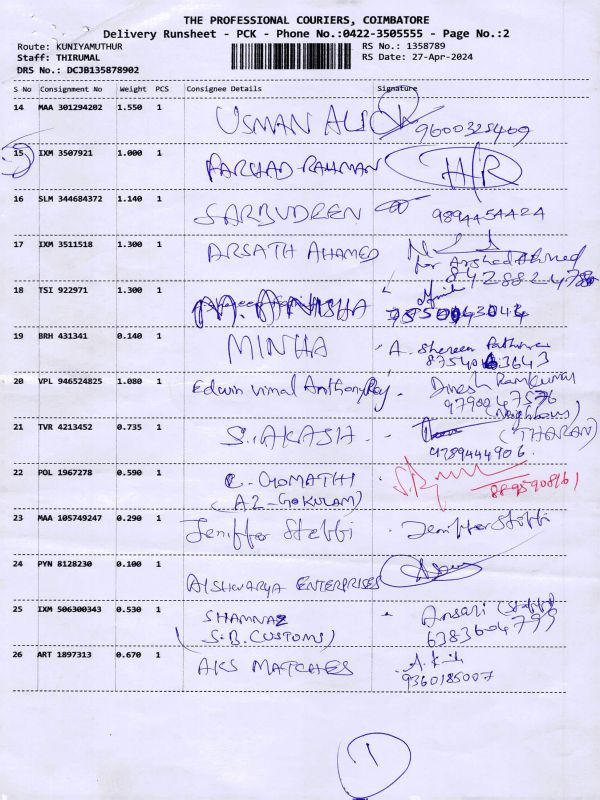 THE PROFESSIONAL COURIERS, COIMBATORE
Delivery Runsheet - PCK - Phone No.:0422-3505555 - Page No.:2
Route: KUNIYAMUTHUR
RS No.: 1358789
Staff: THIRUMAL
RS Date: 27-Apr-2024
DRS No.: DCJB135878902
S No Consignment No Weight PCS Consignee Details Signature
14 MAA 301294202 1.550 1 USMAN ALI 9600325409
15 IXM 3507921 1.000 1 FARCHAD RAHMAN HR
16 SLM 344684372 1.140 1 SARBUDEEN 9894454424
17 IXM 3511518 1.300 1 ARSATH AHAMED
for Arshad Ahmed
8428824780
18 TSI 922971 1.300 1 ANISHA
19 BRH 431341 0.140 1 MINHA A. Shereen Fathima
8754063643
20 VPL 946524825 1.080 1 Edwin vimal Anthony Raj Dinesh Ramkumar
9790247576
(Neighbour)
21 TVR 4213452 0.735 1 S. AKASH (THARAN)
9789444906.
22 POL 1967278 0.590 1 C. GOMATHI
8895908161
(A2-GOKULAM)
23 MAA 105749247 0.290 1 Jeniffer Steffi Jeniffer Steffi
24 PYN 8128230 0.100 1 AISHWARYA ENTERPRISES
25 IXM 506300343 0.530 1 SHAMNAZ Ansari (Staff)
(S.B. CUSTOMS) 6383604799
26 ART 1897313 0.670 1 AKS MATCHES
9360185007
1